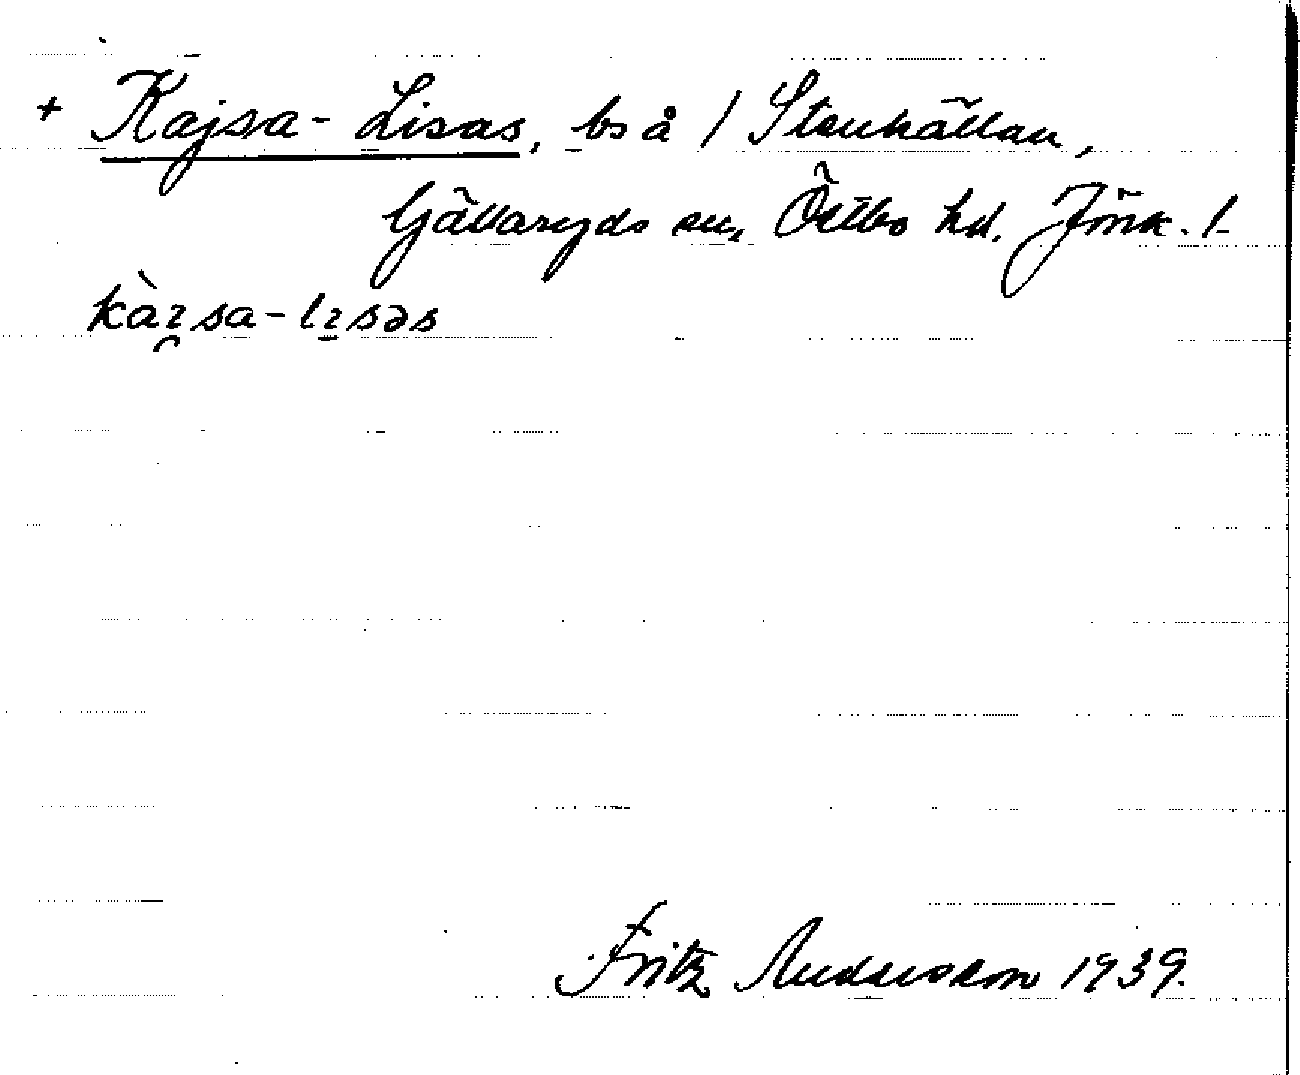 + Kajsa-Lisas, bs å / Stenhällan,
Gällaryds sn, Östbo hd. Jönk. l.
kàɪ̯sa-lɪsəs
Fritz Andersson 1939.